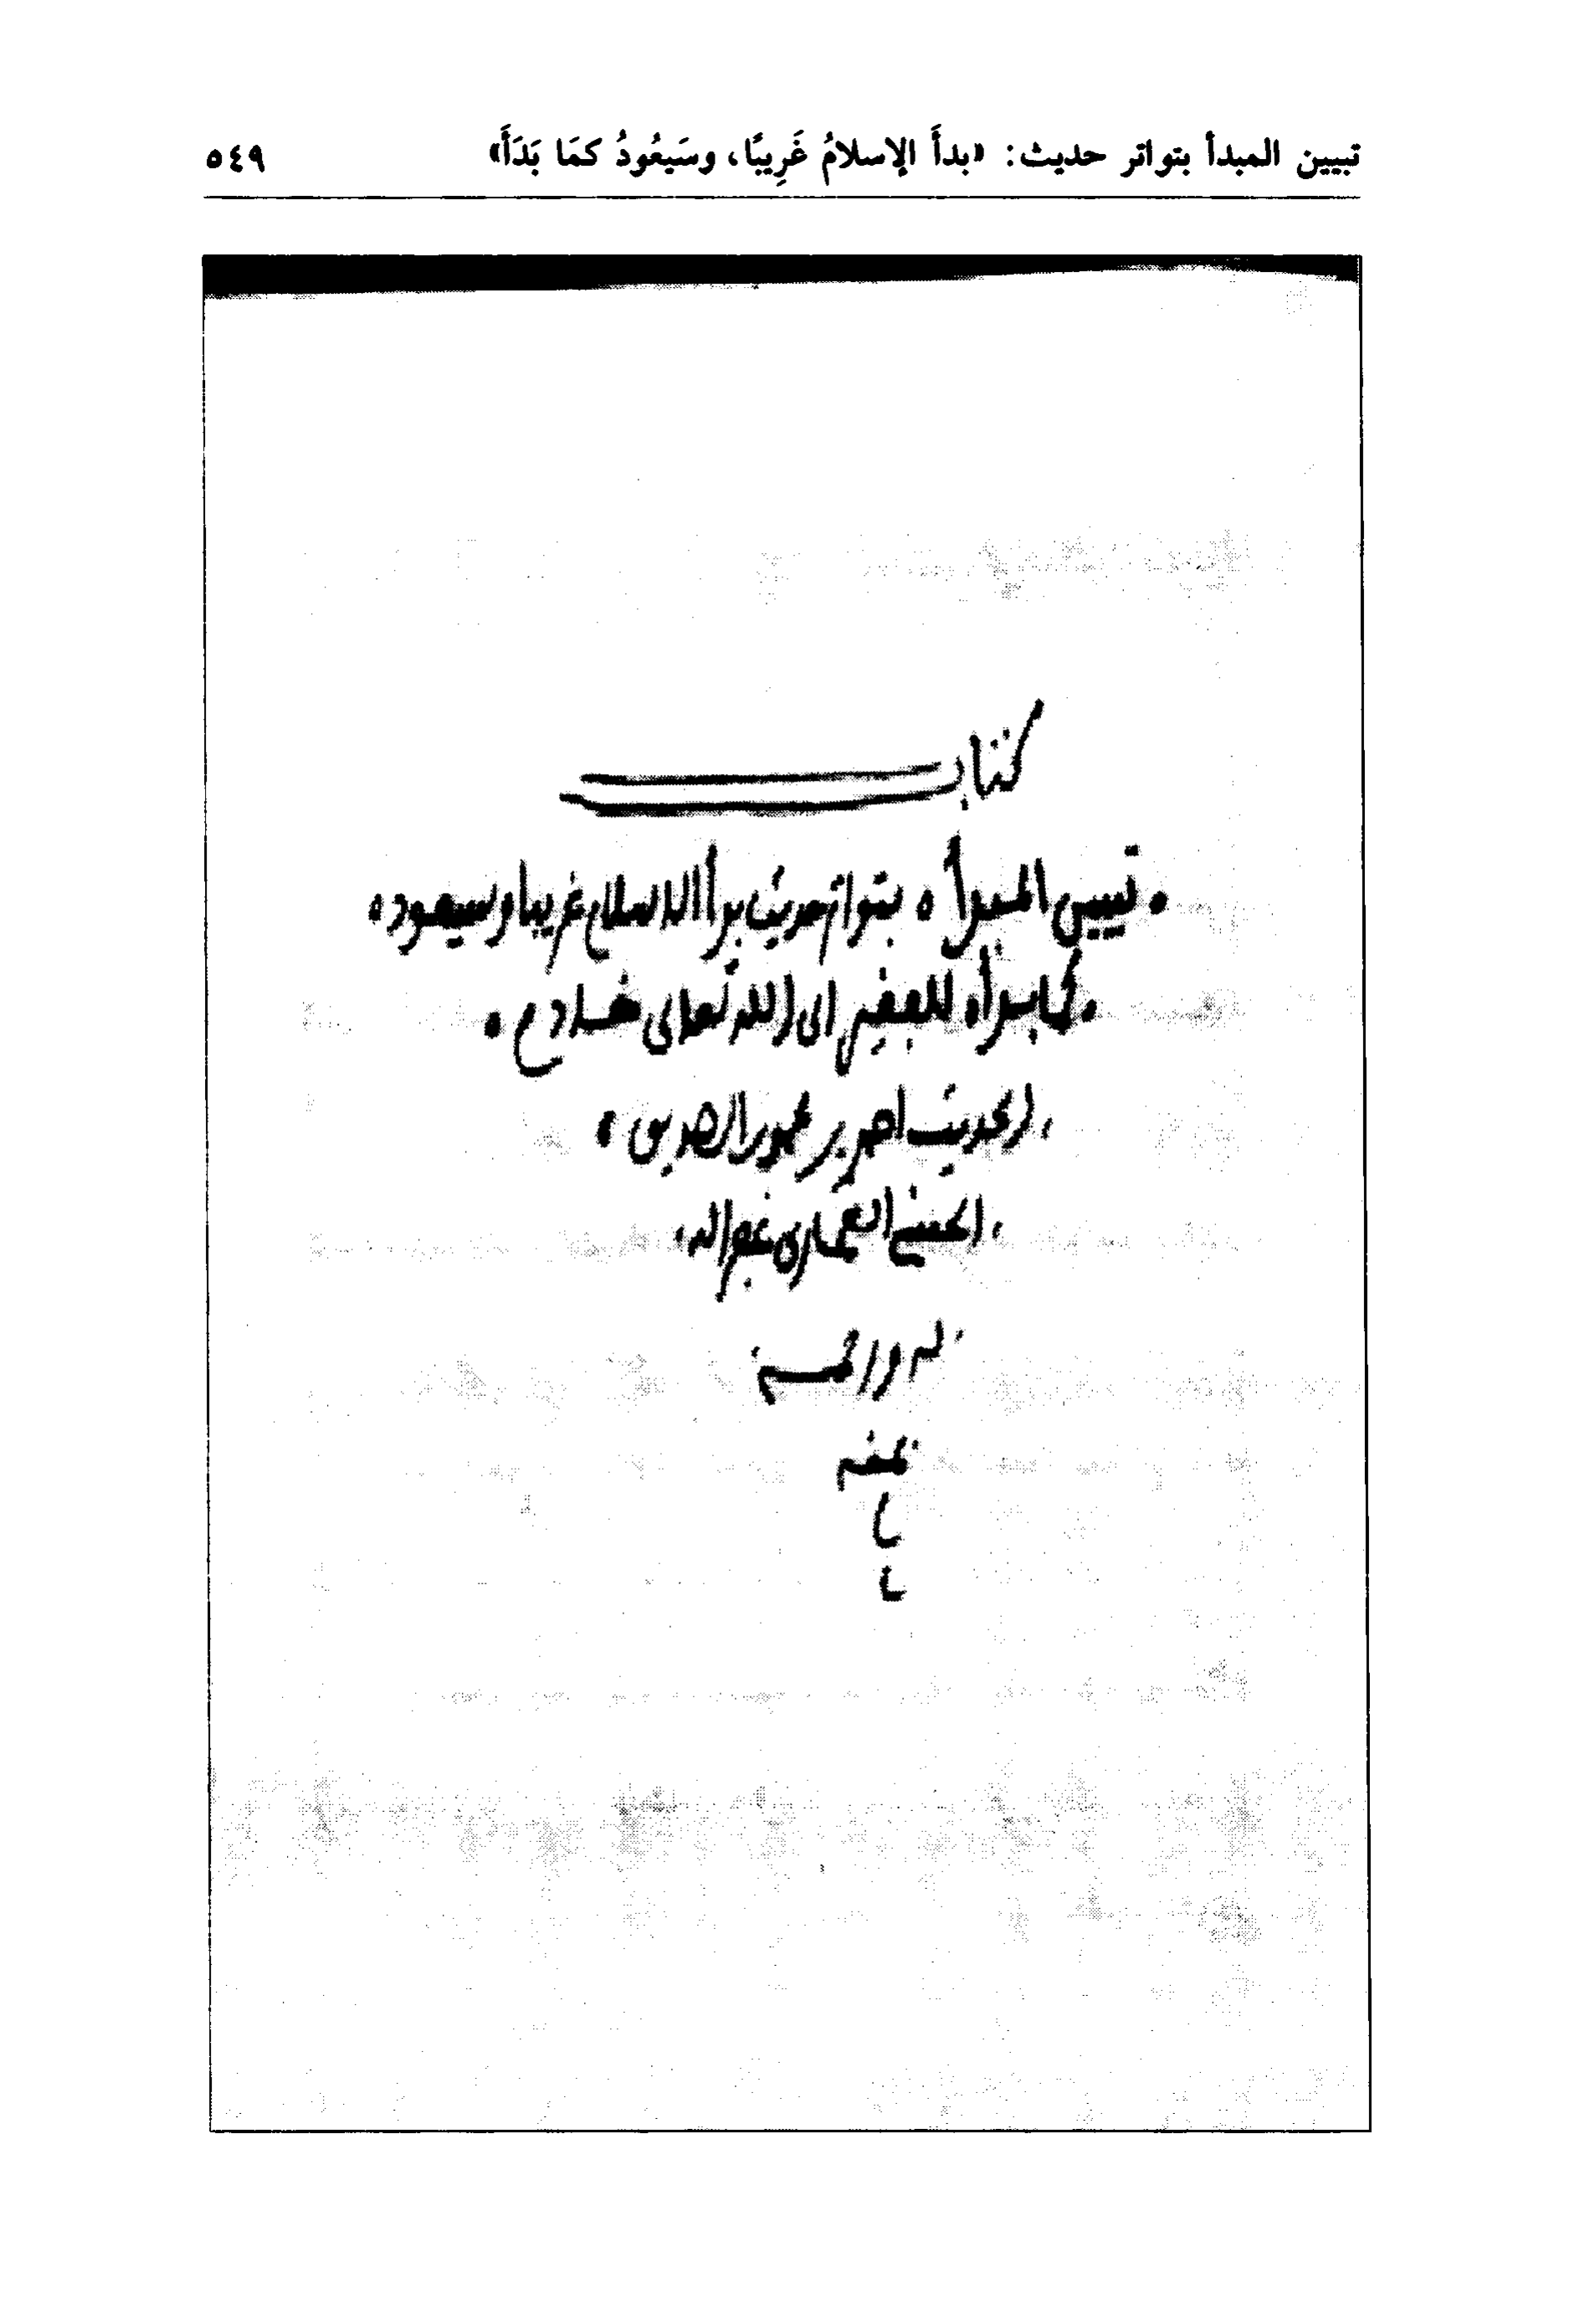 تبيين المبدأ بتواتر حديث: «بدأَ الإسلامُ غَرِيبًا، وسَيعُودُ كمَا بَدَأَ» ٥٤٩
كتاب
تبيين المبدأ بتواتر حديث بدأ الاسلام غريبا وسيعود
كما بدأ للفقير الى الله تعالى خادم
الحديث احمد بن محمد بن الصديق
الحسني الغماري غفر الله
له ورحمه
بمنه